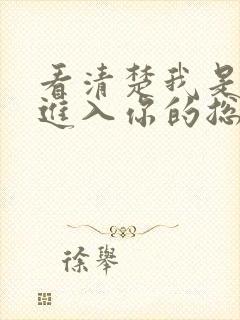 看清楚我是
進入你的总
徐舉